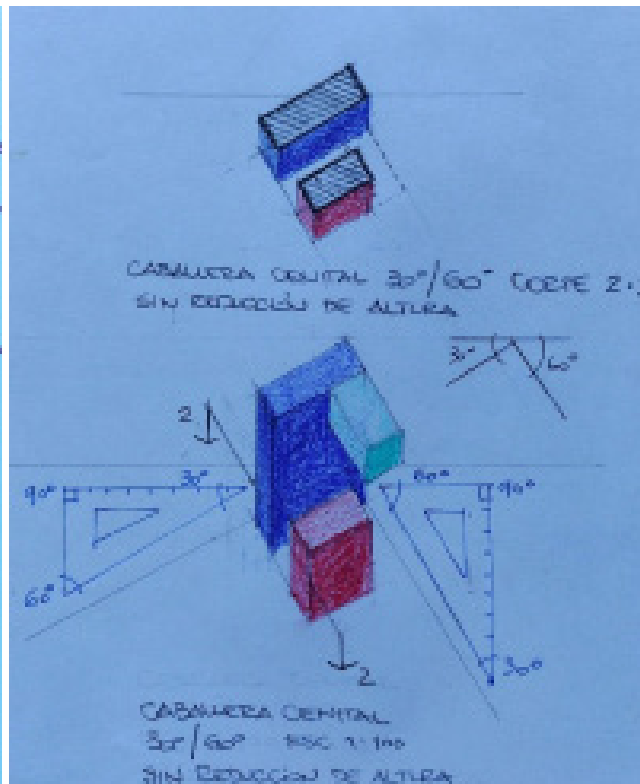 CABALLERA CENITAL 30°/60° CORTE 2.
SIN REDUCCIÓN DE ALTURA
30°
60°
2
30°
60°
90°
90°
60°
30°
2
CABALLERA CENITAL
30°/60° ESC 1:100
SIN REDUCCIÓN DE ALTURA